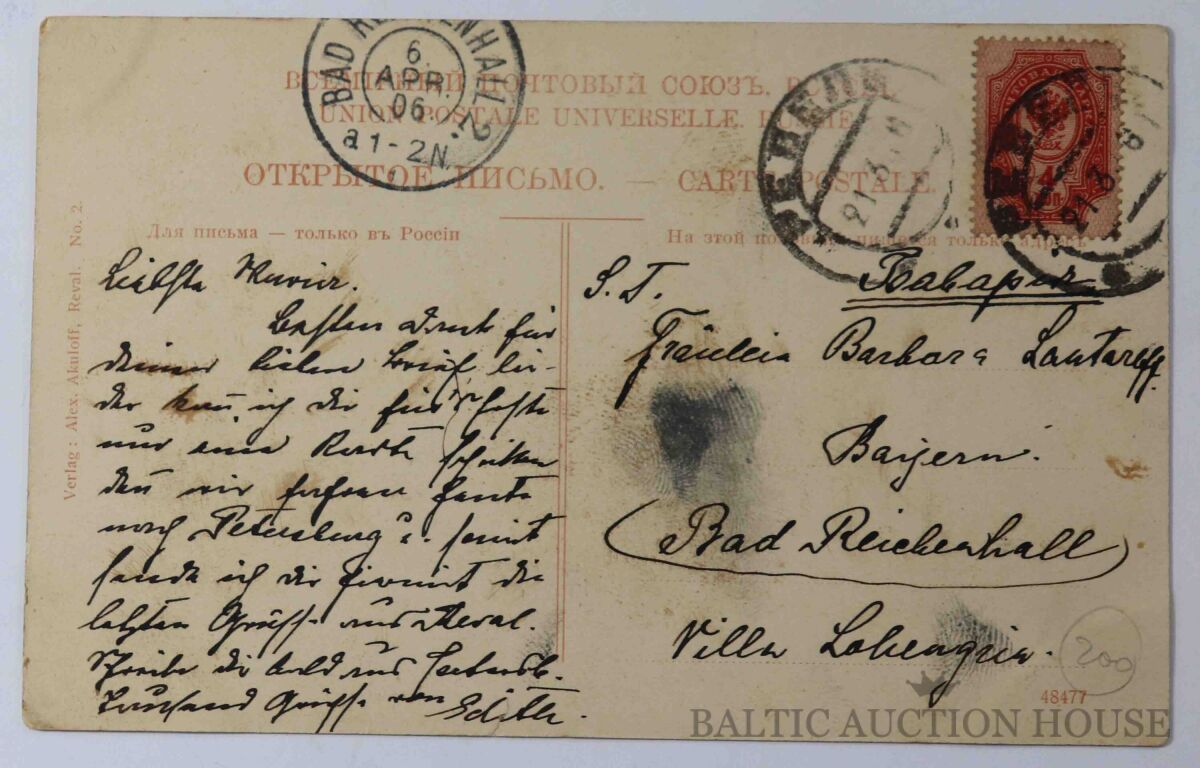 BAD REICHENHALL 2.
6.
APR.
06
a 1-2 N.
ВСЕМІРНЫЙ ПОЧТОВЫЙ СОЮЗЪ.
UNION POSTALE UNIVERSELLE.
ОТКРЫТОЕ ПИСЬМО. — CARTE POSTALE.
РЕВЕЛЬ
21.3.
РЕВЕЛЬ
21.3
4
Для письма — только въ Россіи
На этой только адресъ
Verlag: Alex. Akuloff, Reval. No. 2.
Besten Dank für
deinen lieben Brief lei-
der kann ich dir für's Erste
nur eine Karte schicken
denn wir fahren heute
nach Petersburg u. somit
sende ich dir hiermit die
letzten Grüsse aus Reval.
Schreibe dir bald
Tausend Grüsse von Edith.
S. T.
Баварія
Fräulein Barbara Lautareff.
Bayern.
(Bad Reichenhall)
Villa Lohengrin.
200
48477
BALTIC AUCTION HOUSE